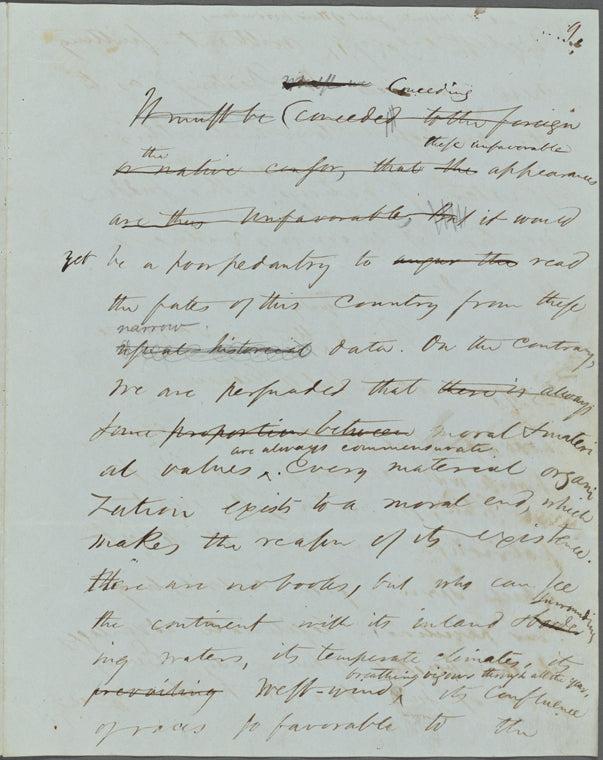 9
Conceding
It must be Conceded to the foreign
the these unfavorable
or native , that the appearances
are thus unfavorable, But it would
yet be a poor pedantry to augur the read
the fates of this Country from these
narrow
historical data. On the contrary,
We are persuaded that there is always
some proportion between moral & materi
are always commensurate
al values. Every material organi
zation exists to a moral end, which
makes the reason of its existence.
There are no books, but who can see
surrounding
the continent with its inland &
ing waters, its temperate climates, its
breathing vigour through all the year,
prevailing West-wind, its confluence
of races so favorable to the